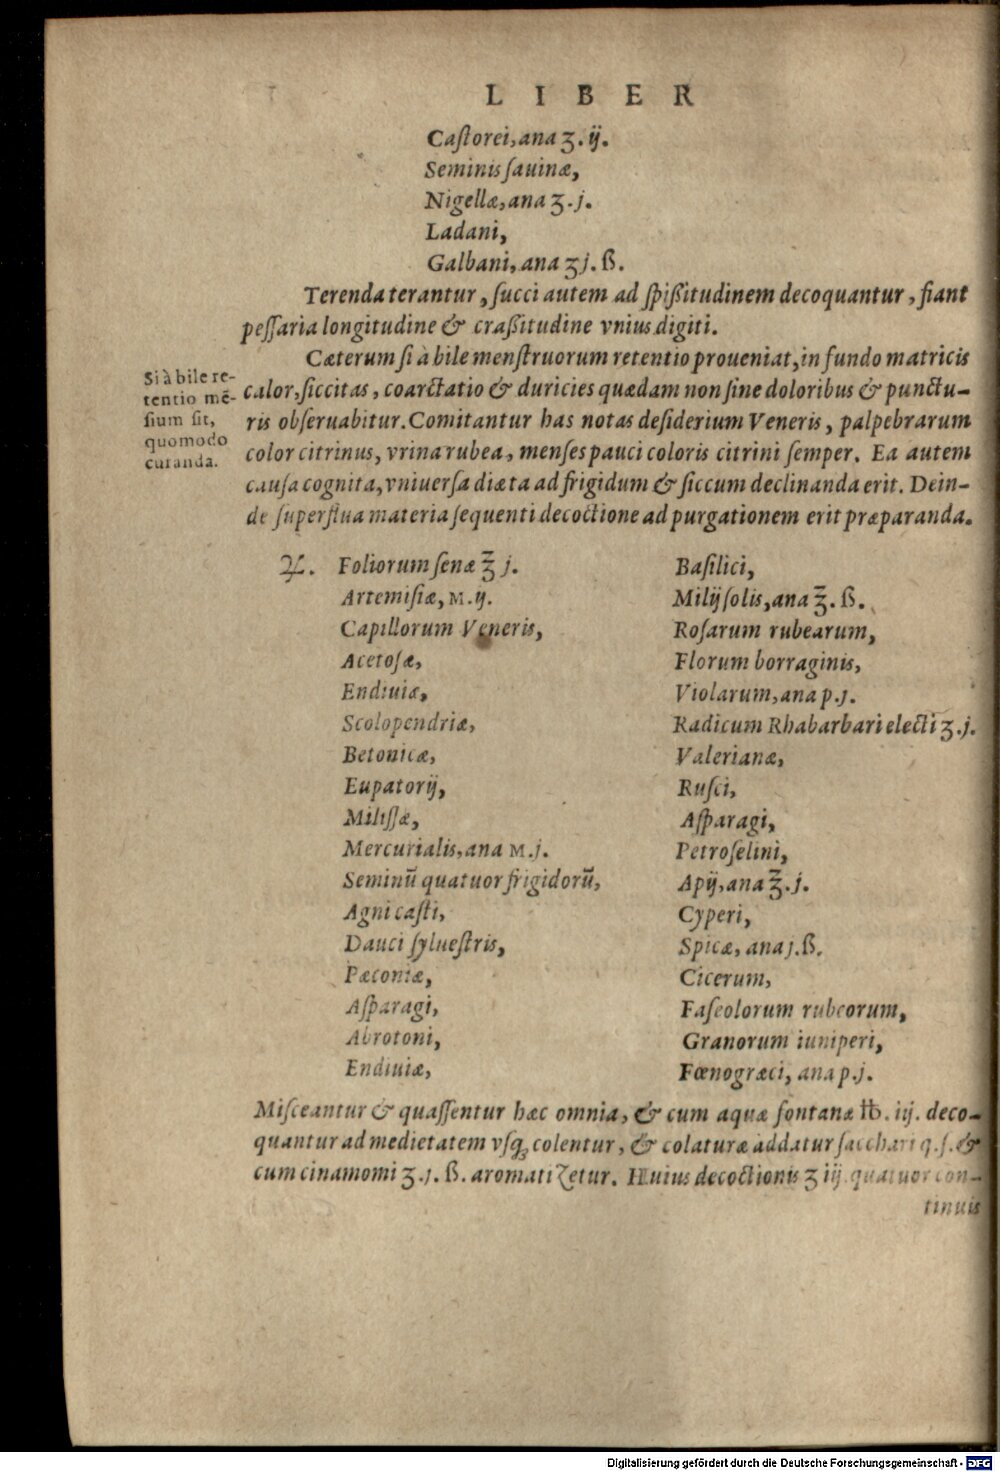 LIBER
Caſtorei, ana ʒ. ij.
Seminis ſauinæ,
Nigellæ, ana ʒ. j.
Ladani,
Galbani, ana ʒ j. ß.
Terenda terantur, ſucci autem ad ſpißitudinem decoquantur, fiant
peſſaria longitudine & craßitudine vnius digiti.
Cæterum ſi à bile menſtruorum retentio proueniat, in fundo matricis
calor, ſiccitas, coarctatio & duricies quædam non ſine doloribus & punctu-
ris obſeruabitur. Comitantur has notas deſiderium Veneris, palpebrarum
color citrinus, vrina rubea, menſes pauci coloris citrini ſemper. Ea autem
cauſa cognita, vniuerſa diæta ad frigidum & ſiccum declinanda erit. Dein-
de ſuperflua materia ſequenti decoctione ad purgationem erit præparanda.
Si à bile re-
tentio mē-
ſium ſit,
quomodo
curanda.
♃. Foliorum ſenæ ℥ j.
Artemiſiæ, M. ij.
Capillorum Veneris,
Acetoſæ,
Endiuiæ,
Scolopendriæ,
Betonicæ,
Eupatorij,
Miliſſæ,
Mercurialis, ana M. j.
Seminū quatuor frigidorū,
Agni caſti,
Dauci ſylueſtris,
Pæoniæ,
Aſparagi,
Abrotoni,
Endiuiæ,
Baſilici,
Milij ſolis, ana ℥. ß.
Roſarum rubearum,
Florum borraginis,
Violarum, ana p. j.
Radicum Rhabarbari electi ʒ. j.
Valerianæ,
Ruſci,
Aſparagi,
Petroſelini,
Apij, ana ℥. j.
Cyperi,
Spicæ, ana j. ß.
Cicerum,
Faſeolorum rubeorum,
Granorum iuniperi,
Fœnogræci, ana p. j.
Miſceantur & quaſſentur hæc omnia, & cum aquæ fontanæ ℔. iij. deco-
quantur ad medietatem vſq́ꝫ colentur, & colaturæ addatur ſacchari q. ſ. &
cum cinamomi ʒ. j. ß. aromatizetur. Huius decoctionis ʒ iij. quatuor con-
tinuis
Digitalisierung gefördert durch die Deutsche Forschungsgemeinschaft - DFG